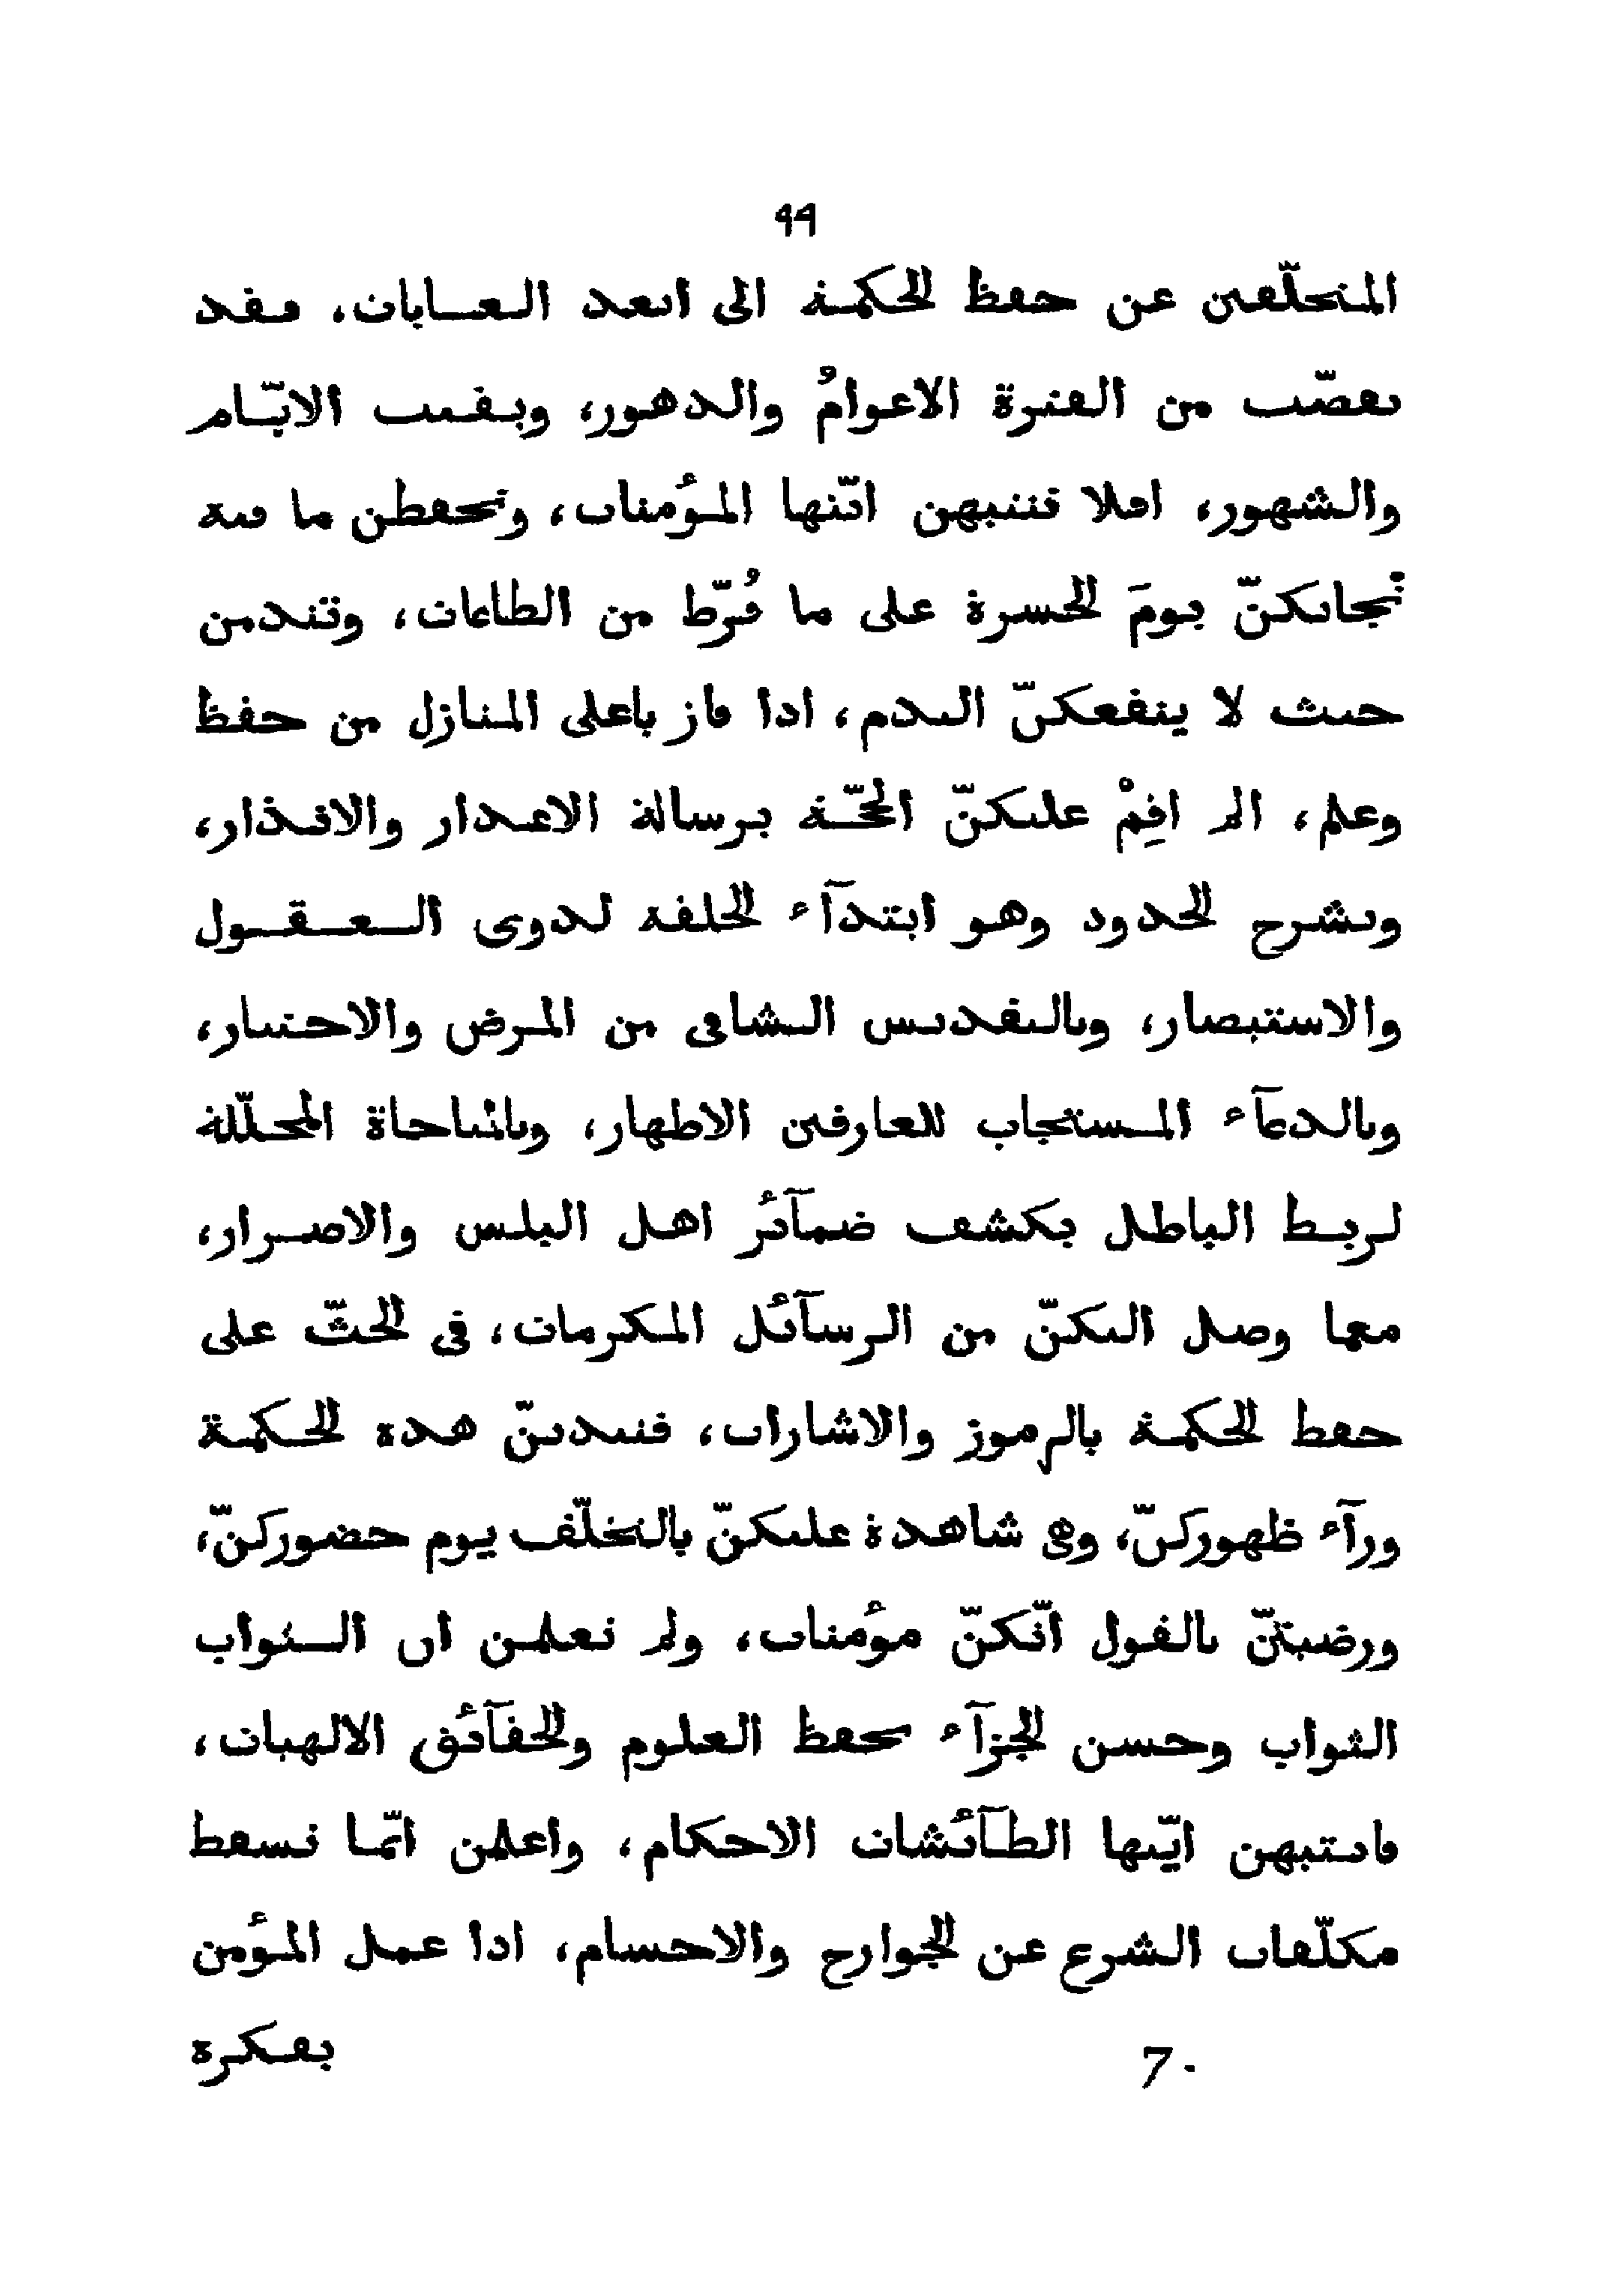 ٩٩
المتخلّفين عن حفظ الحكمة الى ابعد الغايات، فقد
تقضّت من الفترة الاعوامُ والدهور، وبقيت الايّام
والشهور، افلا تنتبهن ايّتها المؤمنات، وتحفظن ما فيه
نجاتكنّ يومَ الحسرة على ما فُرّط من الطاعات، وتندمن
حيث لا ينفعكنّ الندم، اذا فاز باعلى المنازل من حفظ
وعلم، الم اقِمْ عليكنّ الحجّة برسالة الاعذار والانذار،
وبشرح الحدود وهو ابتدآء الخلقة لذوى العقول
والاستبصار، وبالتقديس الشافى من المرض والاختيار،
وبالدعآء المستجاب للعارفين الاطهار، وبالمناجاة المحلّلة
لربط الباطل بكشف ضمآئر اهل البلس والاصرار،
مما وصل اليكنّ من الرسآئل المكرمات، فى الحثّ على
حفظ الحكمة بالرموز والاشارات، فنبذتنّ هذه الحكمة
ورآء ظهوركنّ، وهى شاهدة عليكنّ بالتخلّف يوم حضوركنّ،
ورضيتنّ بالقول انّكنّ مؤمنات، ولم تعلمن ان الثواب
الثواب وحسن الجزآء بحفظ العلوم والحقآئق الالهيات،
فانتبهن ايّتها الطآئشات الاحكام، واعلمن انّما تسقط
مكلّفات الشرع عن الجوارح والاجسام، اذا عمل المؤمن
بفكرة
7 ·